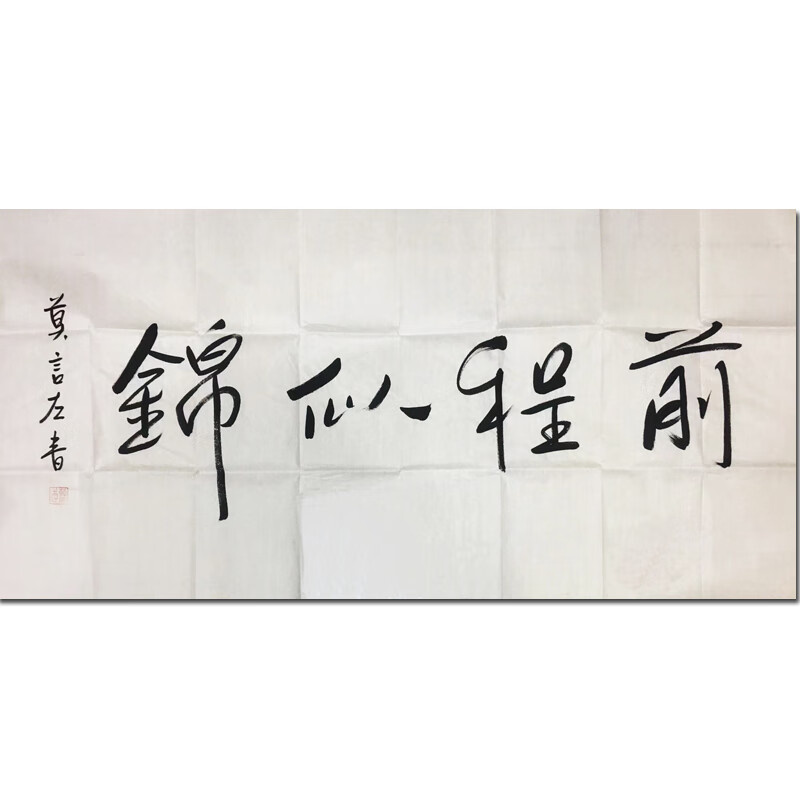 前程似錦
莫言左書